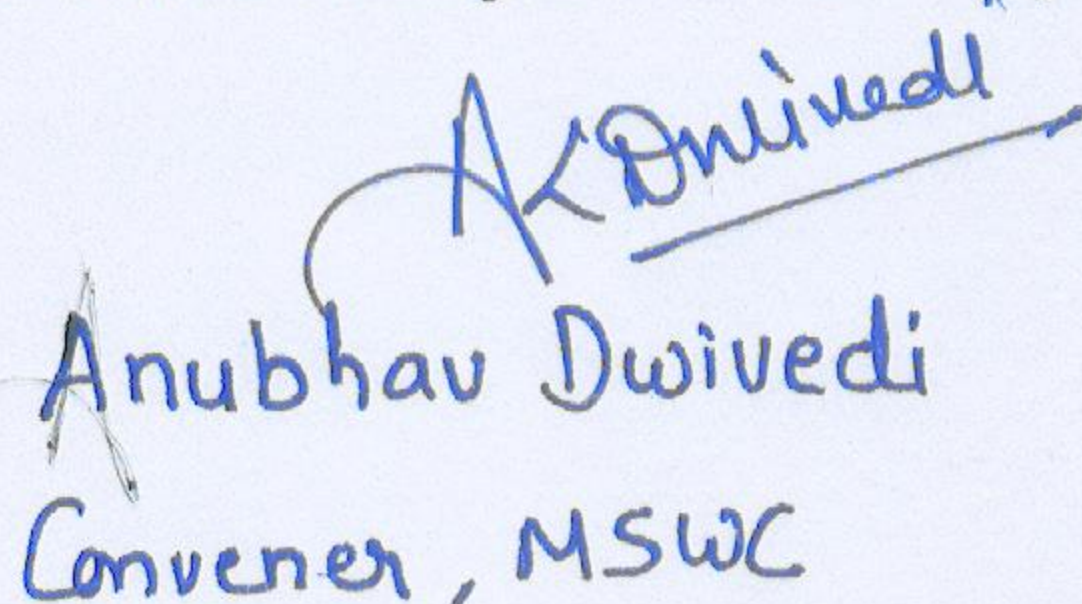 AKDwivedi
Anubhav Dwivedi
Convener, MSWC